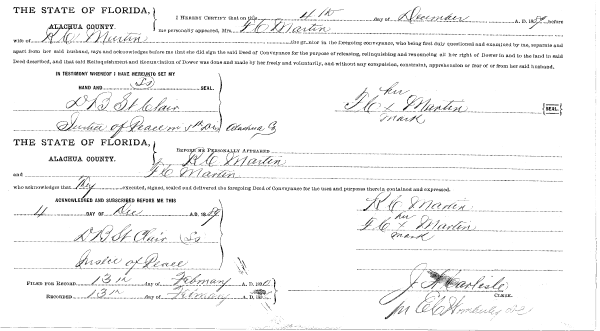 THE STATE OF FLORIDA,
ALACHUA COUNTY.
I HEREBY CERTIFY that on this 4th day of December A. D. 1889, before
me personally appeared, Mrs. F C Martin
wife of R C Martin the grantor in the foregoing conveyance, who being first duly questioned and examined by me, separate and
apart from her said husband, says and acknowledges before me that she did sign the said Deed of Conveyance for the purpose of releasing, relinquishing and renouncing all her right of Dower in and to the land in said
Deed described, and that said Relinquishment and Renunciation of Dower was done and made by her freely and voluntarily, and without any compulsion, constraint, apprehension or fear of or from her said husband.
IN TESTIMONY WHEREOF I HAVE HEREUNTO SET MY
HAND AND Ls SEAL.
D B St Clair
Justice of Peace 5th Dis Alachua Co
her
F C x Martin [SEAL.]
mark
THE STATE OF FLORIDA,
ALACHUA COUNTY.
BEFORE ME PERSONALLY APPEARED
R C Martin
and F C Martin
who acknowledges that They executed, signed, sealed and delivered the foregoing Deed of Conveyance for the uses and purposes therein contained and expressed.
ACKNOWLEDGED AND SUBSCRIBED BEFORE ME THIS
4 DAY OF Dec A.D. 1889
D B St Clair Ls
Justice of Peace
R C Martin
her
F C x Martin
mark
FILED FOR RECORD 13th day of February A. D. 18
RECORDED 13th day of February A. D. 18
J A Carlisle
CLERK.